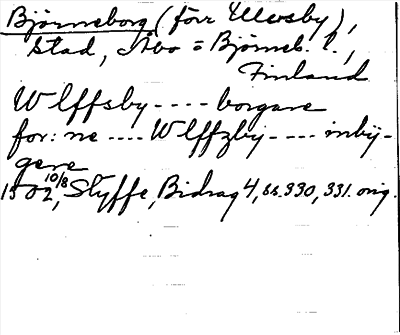 Björneborg (förr Ulvsby),
stad, Åbo = Björneb. l.,
Finland
Wlffsby ---- borgare
for: ne ---- Wlffzby ---- inby-
gere
1502 10/8, Styffe, Bidrag 4, ss. 330, 331. orig.